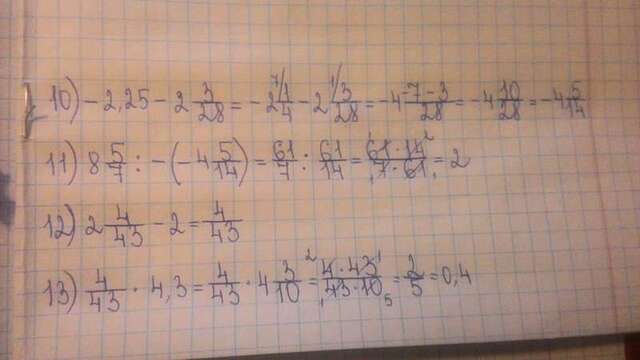 10) -2,25 - 2 3/28 = -2 1/4 - 2 3/28 = -4 7-3/28 = -4 10/28 = -4 5/14
11) 8 5/7 : -(-4 5/14) = 61/7 : 61/14 = 61·14/7·61 = 2
12) 2 4/43 - 2 = 4/43
13) 4/43 · 4,3 = 4/43 · 4 3/10 = 4·43/43·10 = 2/5 = 0,4